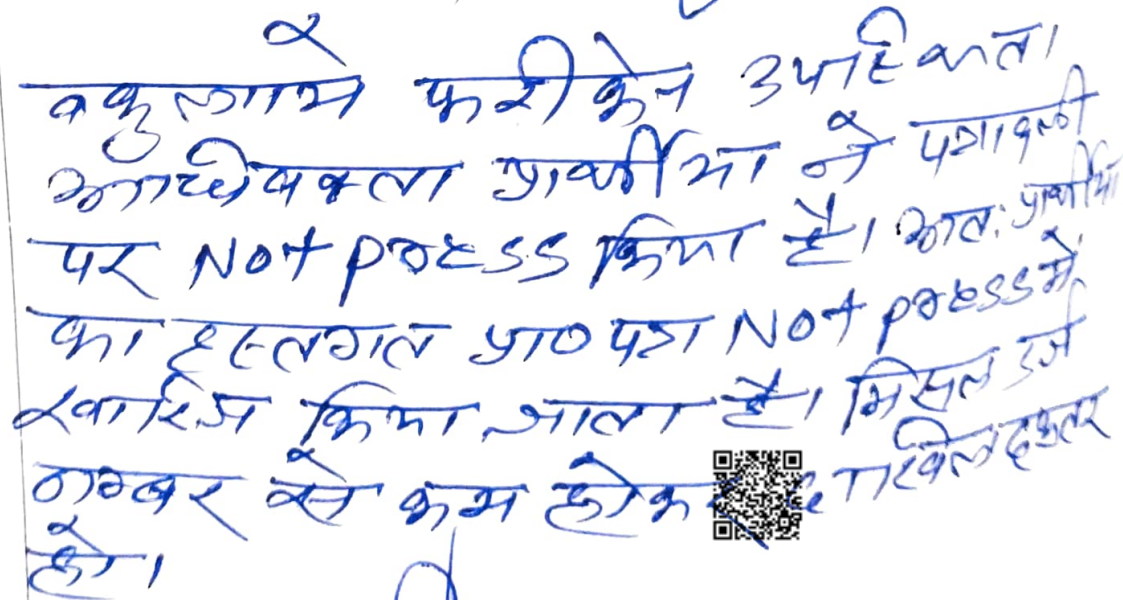 वकुलाये फरीकेन उपस्थित।
अधिवक्ता प्रार्थीया ने पत्रावली
पर Not press किया है। अतः प्रार्थीया
का हस्तगत प्रा० पत्र Not press में
खारिज किया जाता है। मिसल दर्ज
नम्बर से कम होकर दाखिल दफ्तर
हो।